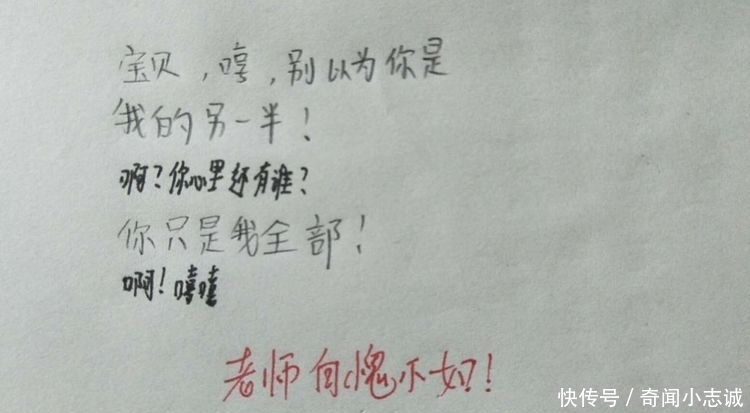 宝贝，嘻，别以为你是
我的另一半！
啊？你心里还有谁？
你只是我全部！
啊！嘻嘻
老师自愧不如！
快传号 / 奇闻小志诚